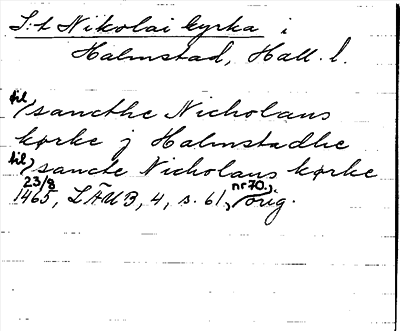 S:t Nikolai kyrka i
Halmstad, Hall. l.
til) sancthe Nicholaus
kørke j Halmstadhe
til) sancte Nicholaus kørke
23/8 1465, LÄUB, 4, s. 61, nr 70.). orig.